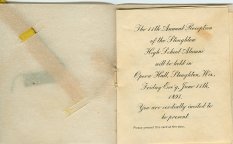 The 11th Annual Reception
of the Stoughton
High School Alumni
will be held in
Opera Hall, Stoughton, Wis.,
Friday Eve'g, June 11th,
1897.
You are cordially invited to
be present.
Please present this card at the door.